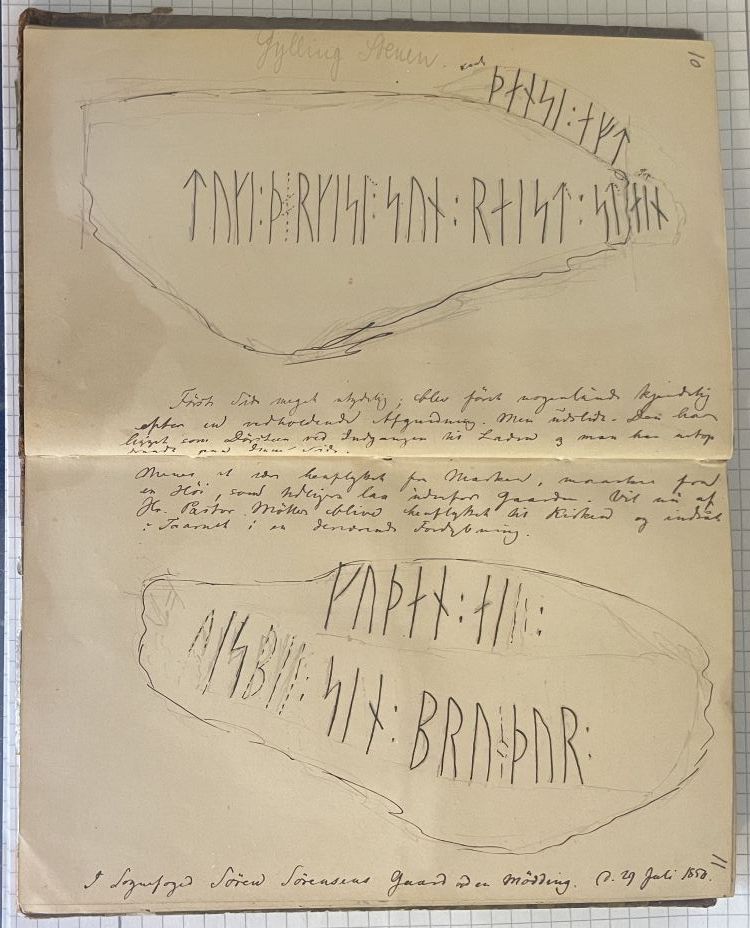 Gylling Stenen.
10
ᚦᛅᚾᛋᛁ:ᛅᚠᛏ
ᛏᚢᚴᛁ:ᚦᚱᚴᛁᛋᛁ:ᛋᚢᚾ:ᚱᛅᛁᛋᛏ:ᛋᛏᛅᛁᚾ
Förste Side meget utydelig; blev först nogenlunde kjendelig
efter en vedholdende Afgnidning. Men udslidt. Den har
ligget som Dörsteen ved Indgangen til Laden og man har netop
traadt paa denne Side.
Menes at være henflyttet fra Marken, maaskee fra
en Höi, som tidligere laa udenfor Gaarden. Vil nu af
Hr. Pastor Möller blive henflyttet til Kirken og indsat
i Taarnet i en derværende Fordybning.
ᚴᚢᚦᛅᚾ:ᛅᛁ
ᛁᛋᛒᛁ: ᛋᛁᚾ: ᛒᚱᚢᚦᚢᚱ:
I Sognefoged Sören Sörensens Gaard ved en Mödding. D. 29 Juli 1850.
11